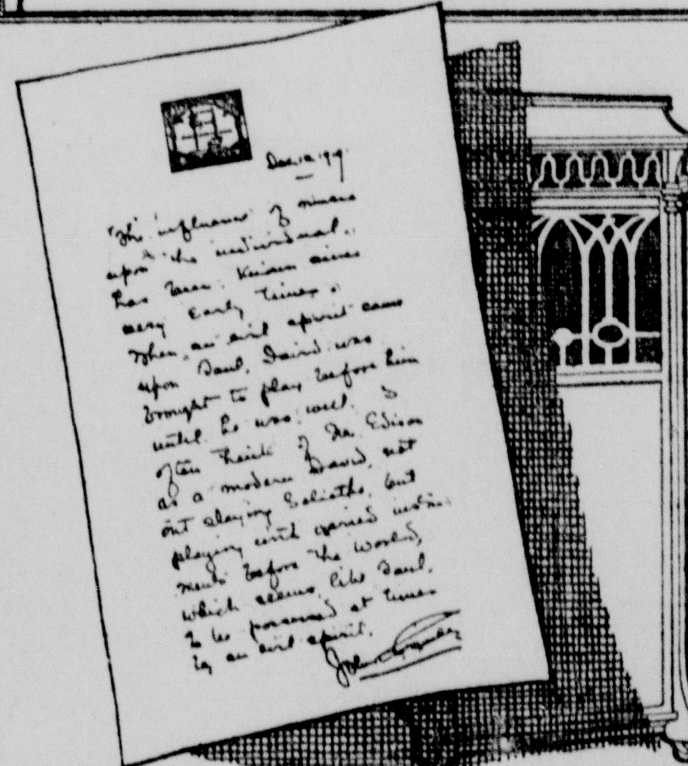 The influence of music
upon the individual
has been known since
very early times.
When an evil spirit came
upon Saul, David was
brought to play before him
until he was well. I
often think of Mr. Edison
as a modern David, not
out slaying Goliaths, but
playing with varied instru-
ments before the World,
which seems, like Saul,
to be possessed at times
by an evil spirit.
John